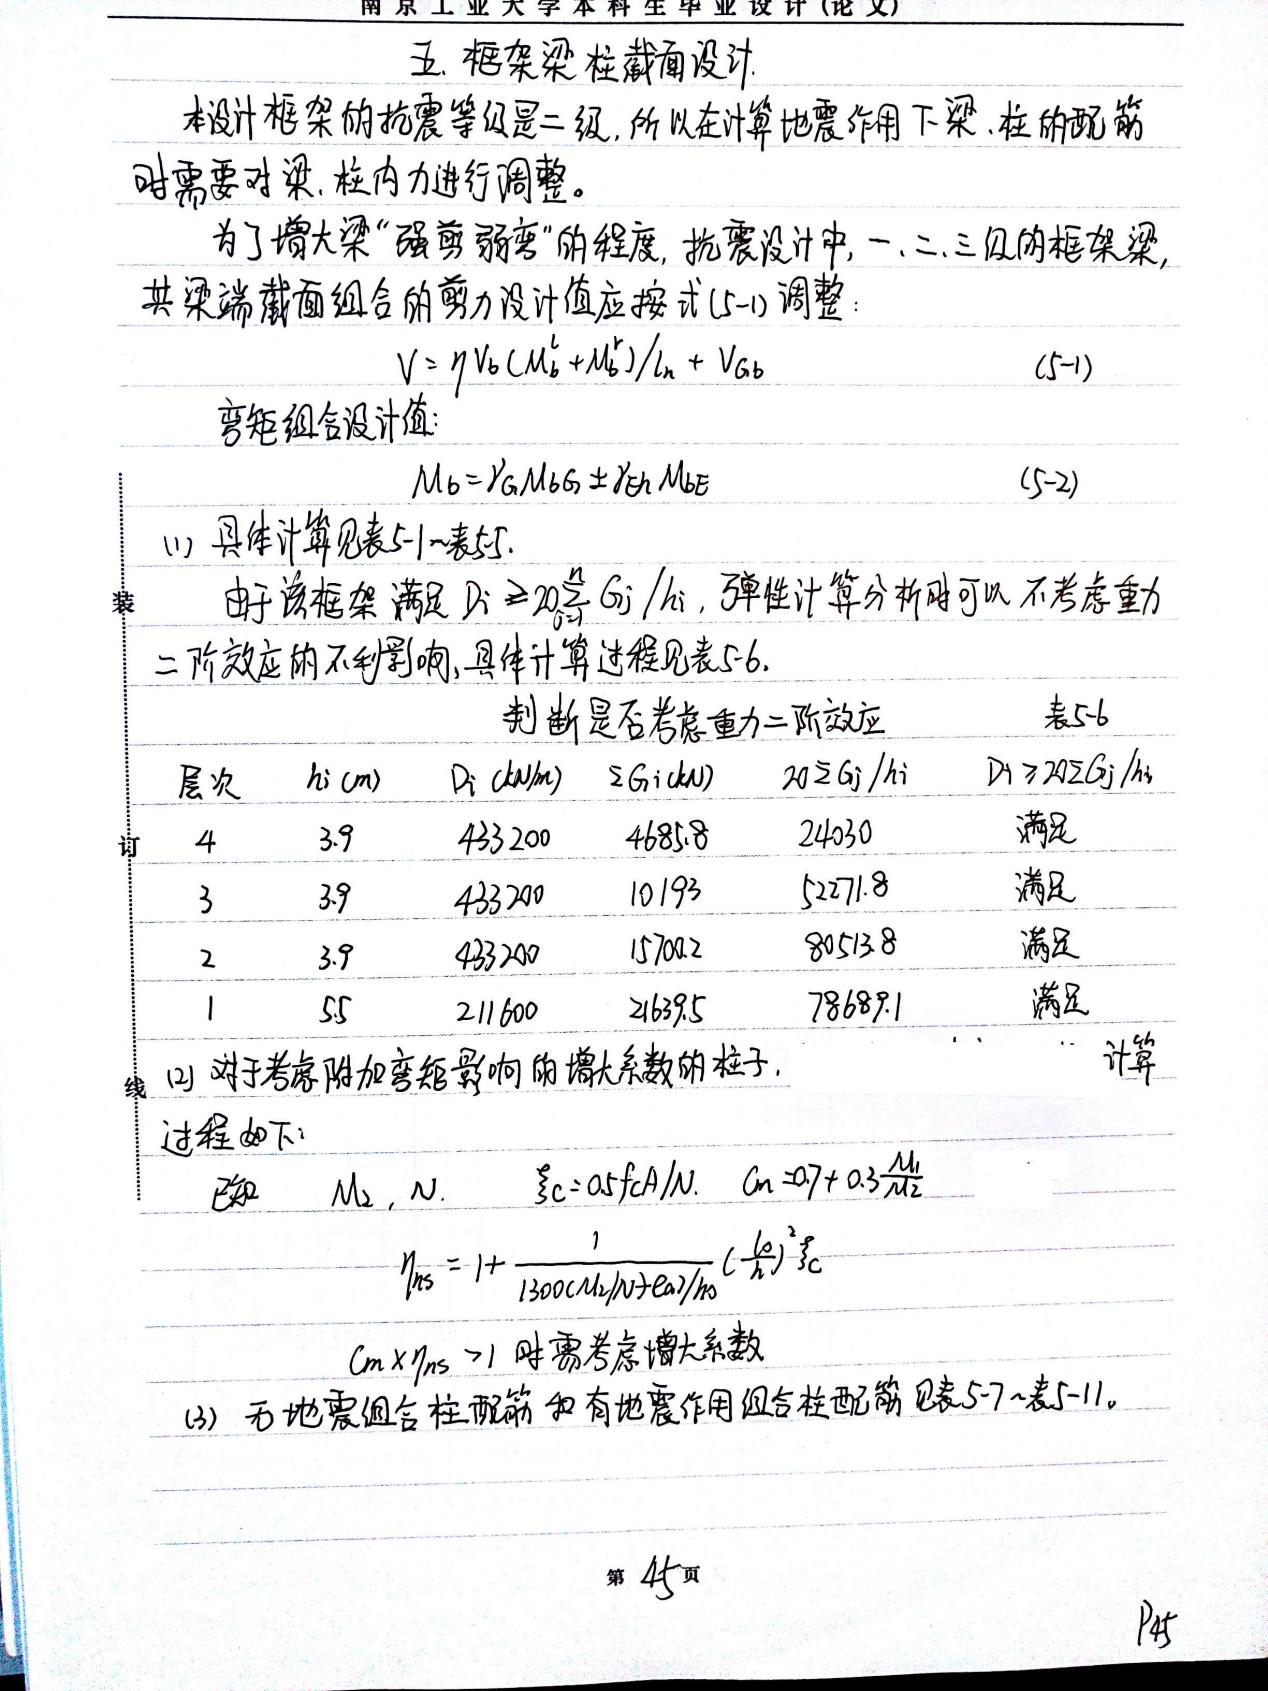 南京工业大学本科生毕业设计(论文)
五. 框架梁柱截面设计.
本设计框架的抗震等级是二级,所以在计算地震作用下梁、柱的配筋
时需要对梁、柱内力进行调整。
为了增大梁“强剪弱弯”的程度, 抗震设计中, 一、二、三级的框架梁,
其梁端截面组合的剪力设计值应按式(5-1)调整:
V = ηVb(Mb^l + Mb^r)/ln + VGb (5-1)
弯矩组合设计值:
Mb = γG MbG ± γEh MbE (5-2)
(1) 具体计算见表5-1~表5-5.
由于该框架满足 Di ≥ 20∑Gj/hi, 弹性计算分析时可以不考虑重力
二阶效应的不利影响,具体计算过程见表5-6.
判断是否考虑重力二阶效应 表5-6
层次 hi (m) Di (kN/m) ΣGi(kN) 20ΣGj/hi Di ≥ 20ΣGj/hi
4 3.9 433200 4685.8 24030 满足
3 3.9 433200 10193 52271.8 满足
2 3.9 433200 15700.2 80513.8 满足
1 5.5 211600 21639.5 78689.1 满足
(2) 对于考虑附加弯矩影响的增大系数的柱子, 计算
过程如下:
已知 M2, N. ξc = 0.5fcA/N. Cm = 0.7 + 0.3 M1/M2
ηns = 1 + 1/(1300(M2/N+ea)/h0) (l0/h)² ξc
Cm × ηns > 1 时需考虑增大系数
(3) 无地震组合柱配筋和有地震作用组合柱配筋见表5-7~表5-11。
装
订
线
第 45 页
P45